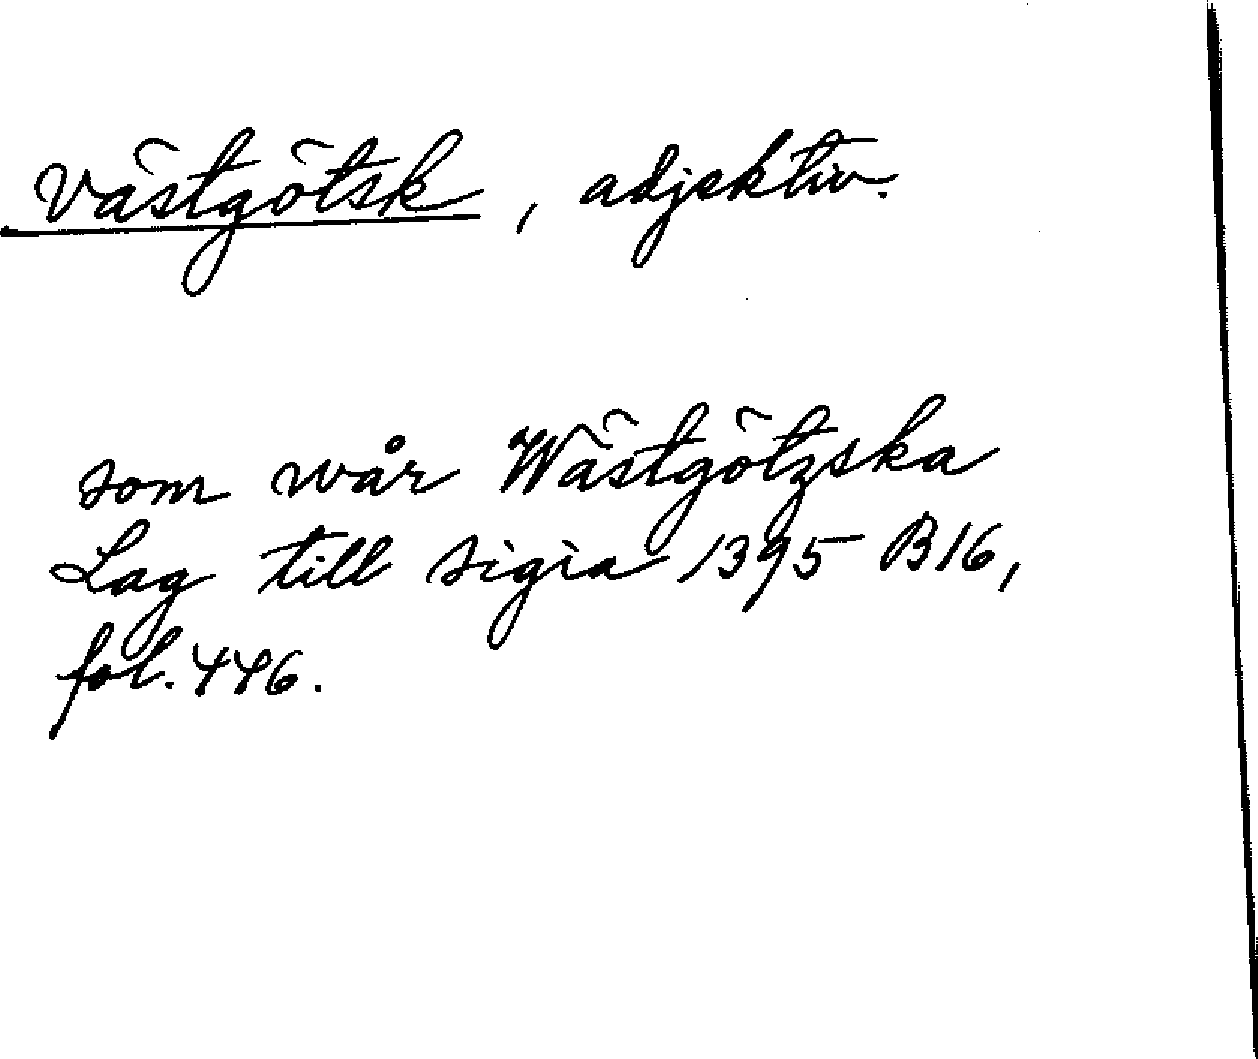 västgötsk, adjektiv.
som wår Wästgötzska
Lag till sigia 1395 B16,
fol. 446.